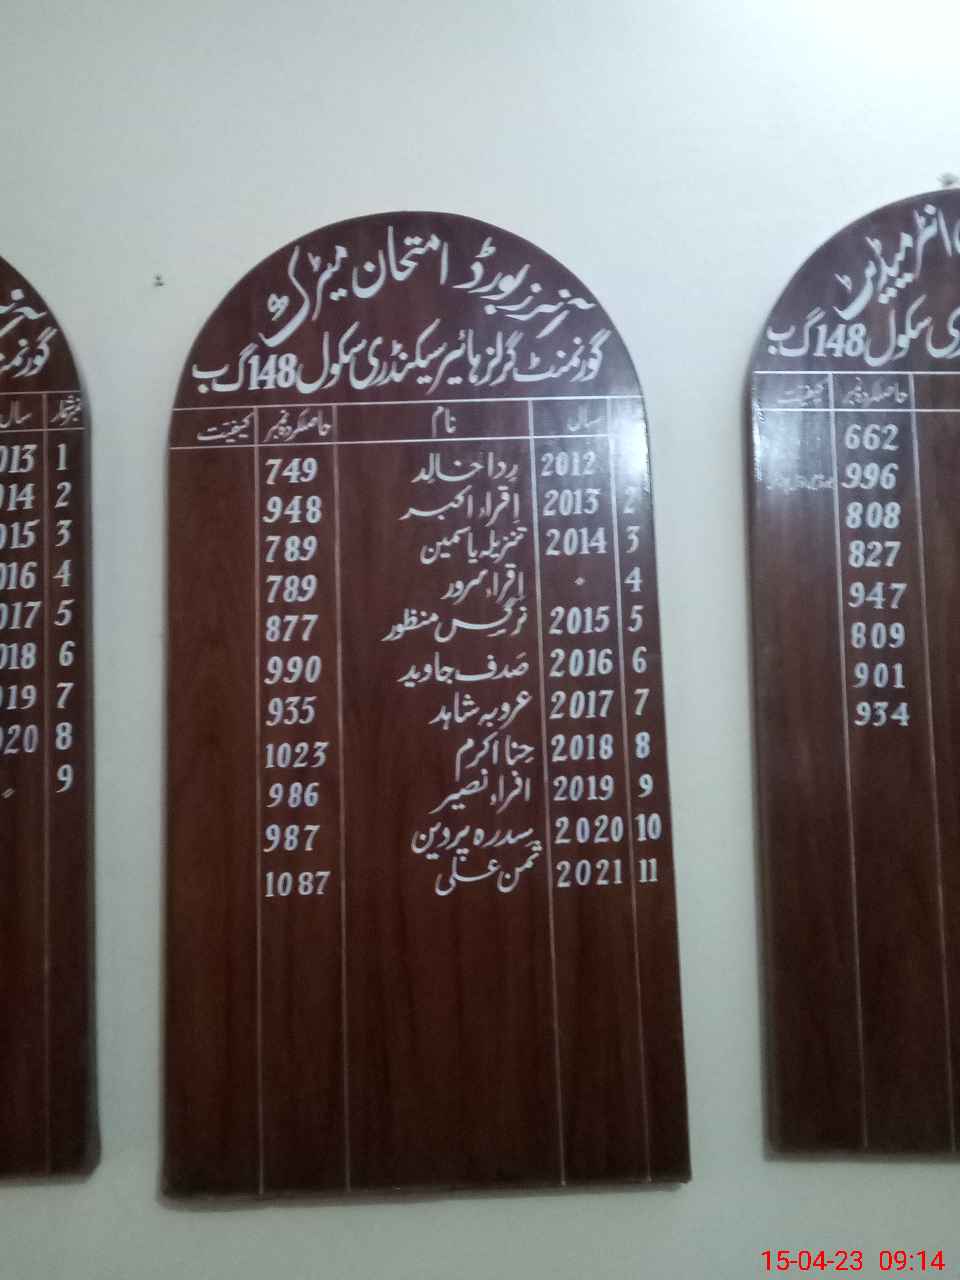 آنرز بورڈ امتحان میٹرک
گورنمنٹ گرلز ہائیر سیکنڈری سکول 148 گ ب
سال نام حاصلکردہ نمبر کیفیت
2012 ردا خالد 749
2 2013 اقراء اکبر 948
3 2014 تنزیلہ یاسمین 789
4 اقراء سرور 789
5 2015 نرگس منظور 877
6 2016 صدف جاوید 990
7 2017 عروبہ شاہد 935
8 2018 حنا اکرم 1023
9 2019 افراء نصیر 986
10 2020 سدرہ پروین 987
11 2021 ثمن علی 1087
گورنمنٹ
نمبر شمار سال
1 013
2 014
3 015
4 016
5 017
6 018
7 019
8 020
9
انٹرمیڈیٹ
ی سکول 148 گ ب
حاصلکردہ نمبر کیفیت
662
996
808
827
947
809
901
934
15-04-23 09:14